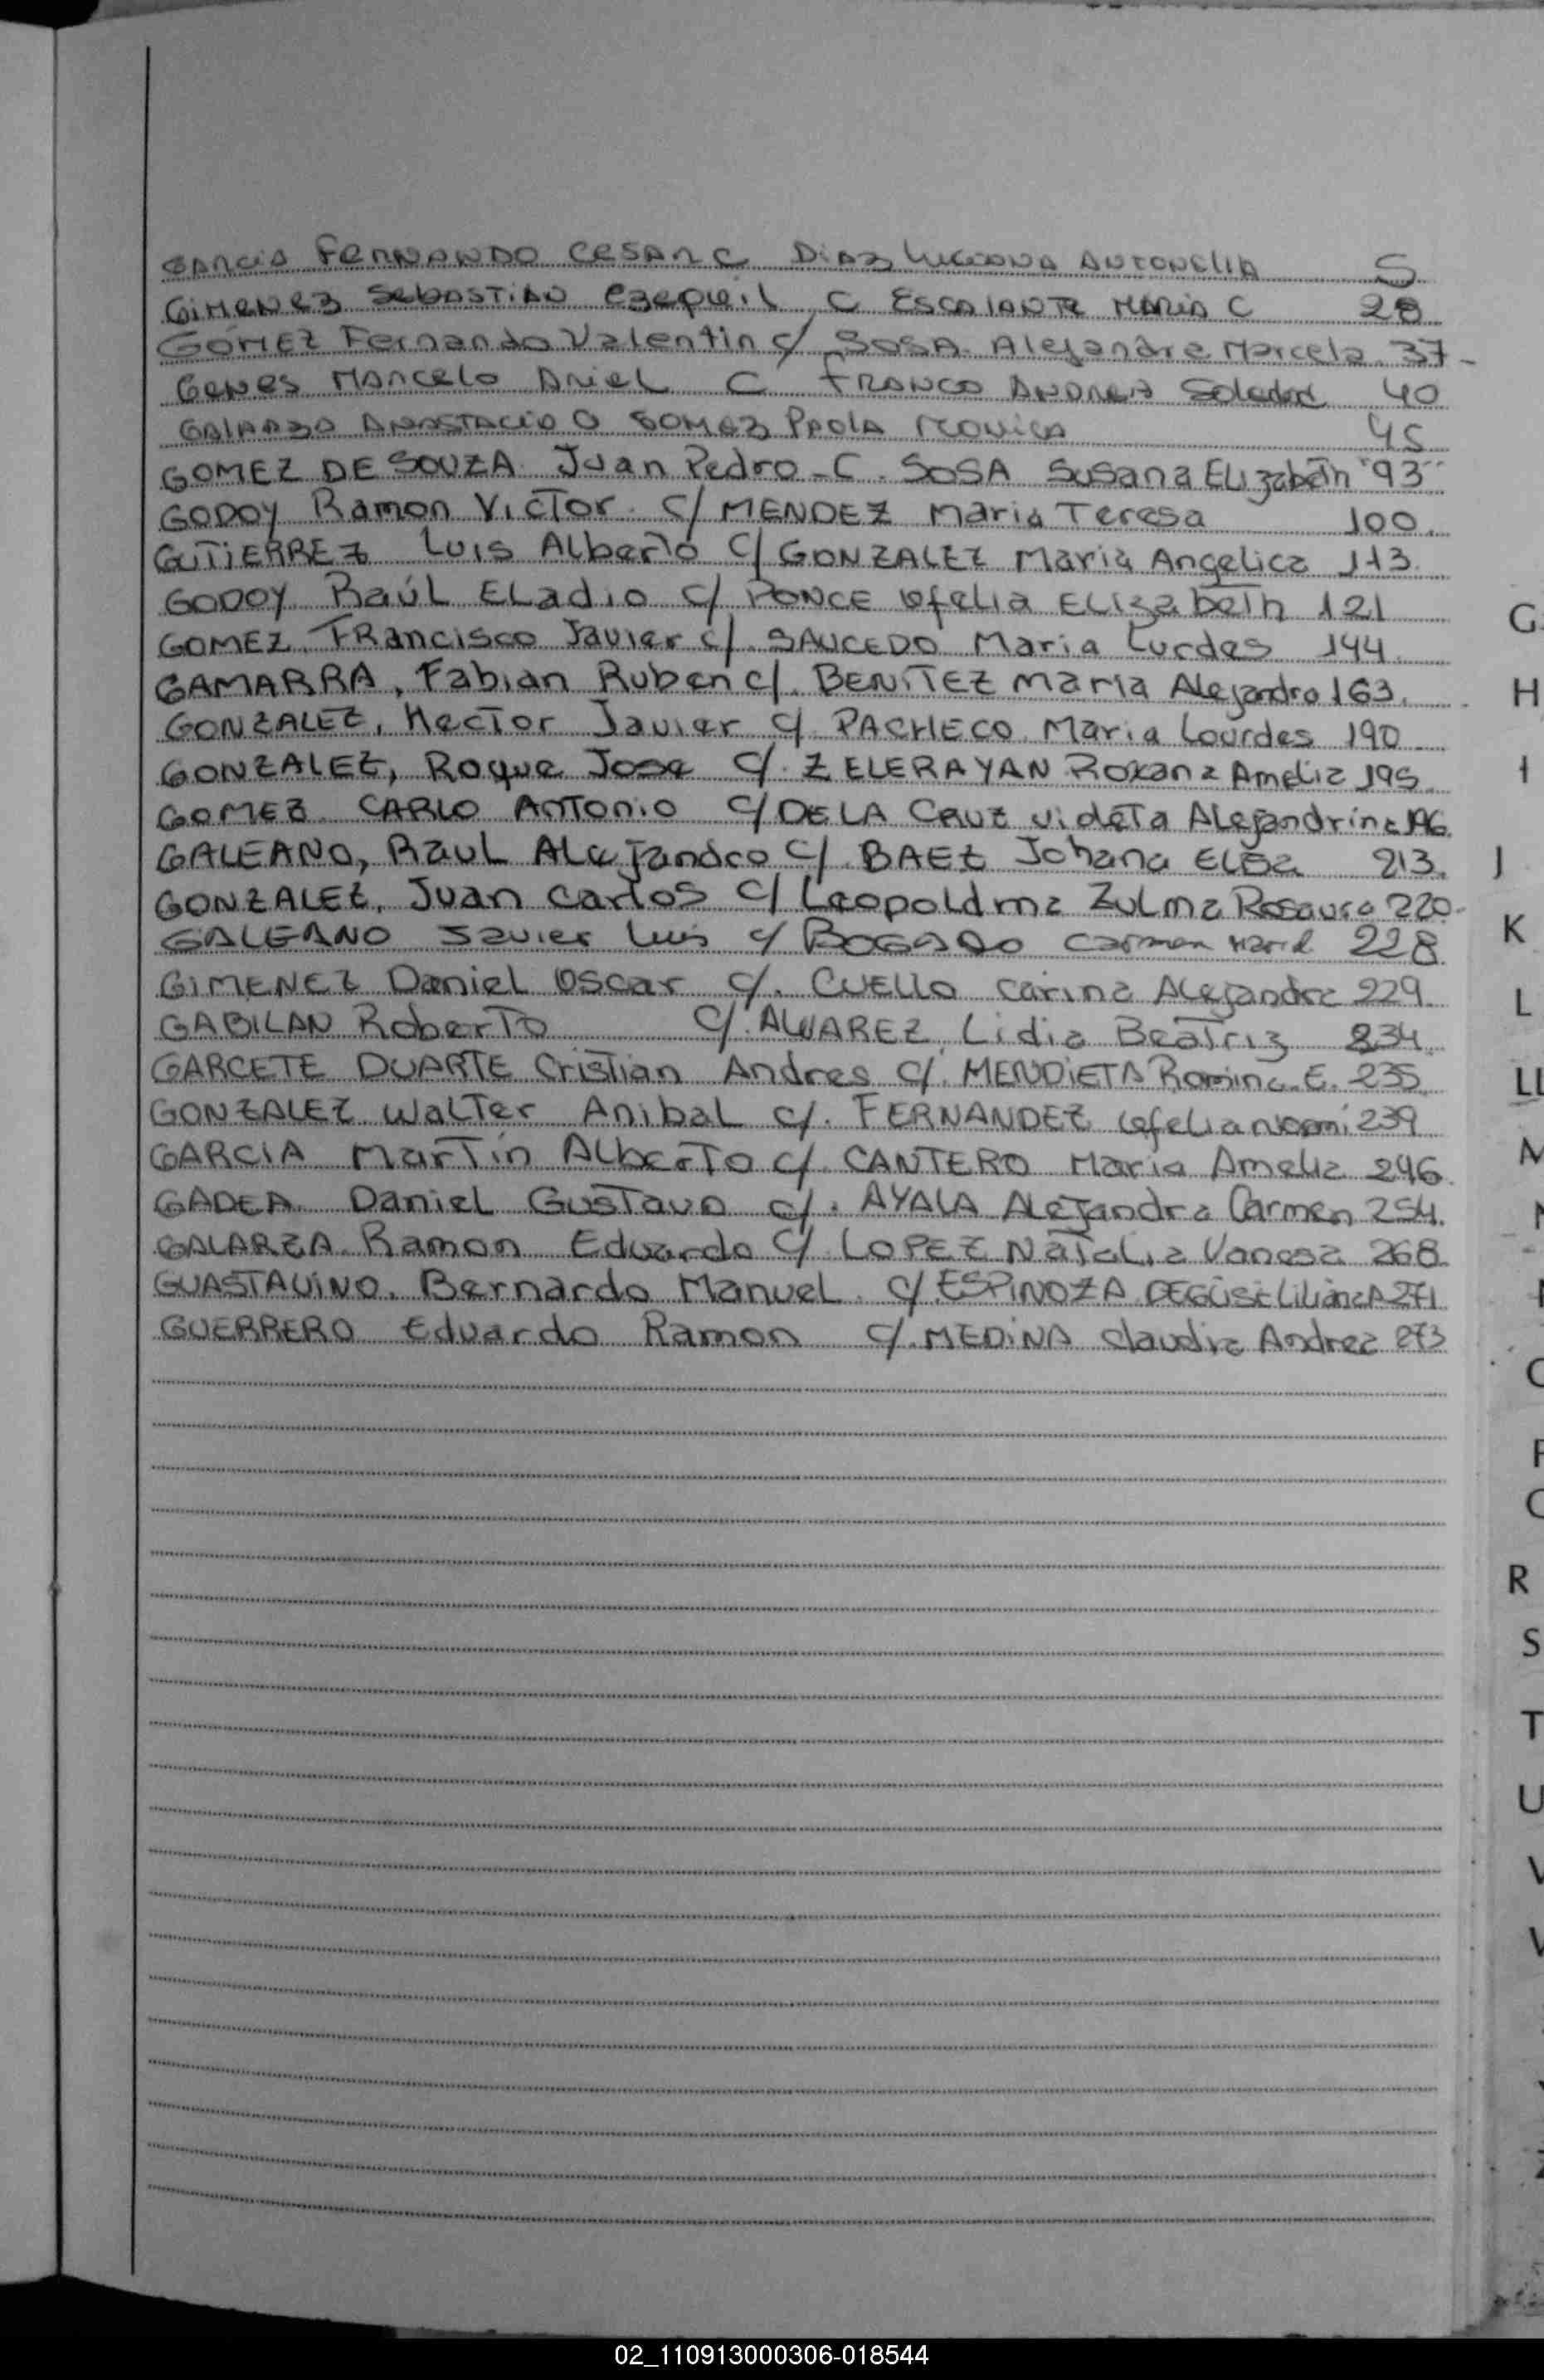 GARCIA FERNANDO CESAR C DIAZ LUCIANA ANTONELLA 5
GIMENEZ SEBASTIAN EZEQUIEL C ESCALANTE MARIA C 28
GOMEZ Fernando Valentin c/ SOSA Alejandra Marcela 37
GENES MARCELO ARIEL C FRANCO ANDREA Soledad 40
ANASTACIO GOMEZ PAOLA MONICA 45
GOMEZ DE SOUZA Juan Pedro - C. SOSA Susana Elizabeth "93"
GODOY Ramon Victor. C/ MENDEZ Maria Teresa 100.
GUTIERREZ Luis Alberto C/ GONZALEZ Maria Angelica 113.
GODOY Raúl Eladio c/ PONCE Ofelia Elizabeth 121
GOMEZ, Francisco Javier c/. SAUCEDO Maria Lurdes 144.
GAMARRA, Fabian Ruben c/. BENITEZ Maria Alejandra 163.
GONZALEZ, Hector Javier c/. PACHECO Maria Lourdes 190
GONZALEZ, Roque Jose c/. ZELERAYAN Roxana Amelia 195.
GOMEZ CARLO ANTONIO c/ DE LA CRUZ Videta Alejandrina 196
GALEANO, Raul Alejandro c/. BAEZ Johana Elba 213.
GONZALEZ, Juan Carlos c/ Leopoldina Zulma Rosaura 220.
GALEANO Javier Luis c/ BOGADO Carmen Maria 228
GIMENEZ Daniel Oscar c/. CUELLO Carina Alejandra 229.
GABILAN Roberto c/. ALVAREZ Lidia Beatriz 234.
GARCETE DUARTE Cristian Andres c/. MENDIETA Romina E. 235
GONZALEZ Walter Anibal c/. FERNANDEZ Ofelia Noemi 239
GARCIA Martin Alberto c/. CANTERO Maria Amelia 246.
GADEA Daniel Gustavo c/. AYALA Alejandra Carmen 254.
GALARZA Ramon Eduardo c/ LOPEZ Natalia Vanesa 268
GUASTAVINO, Bernardo Manuel. c/ ESPINOZA Liliana 271
GUERRERO Eduardo Ramon c/. MEDINA Claudia Andrea 273
G
H
I
J
K
L
LL
M
O
P
R
S
T
U
V
02_110913000306-018544